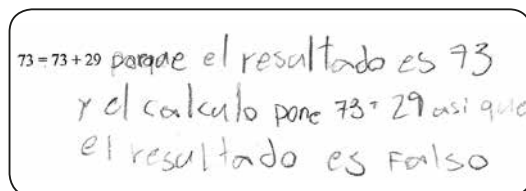 73 = 73 + 29 porque el resultado es 73
y el calculo pone 73 + 29 asi que
el resultado es Falso